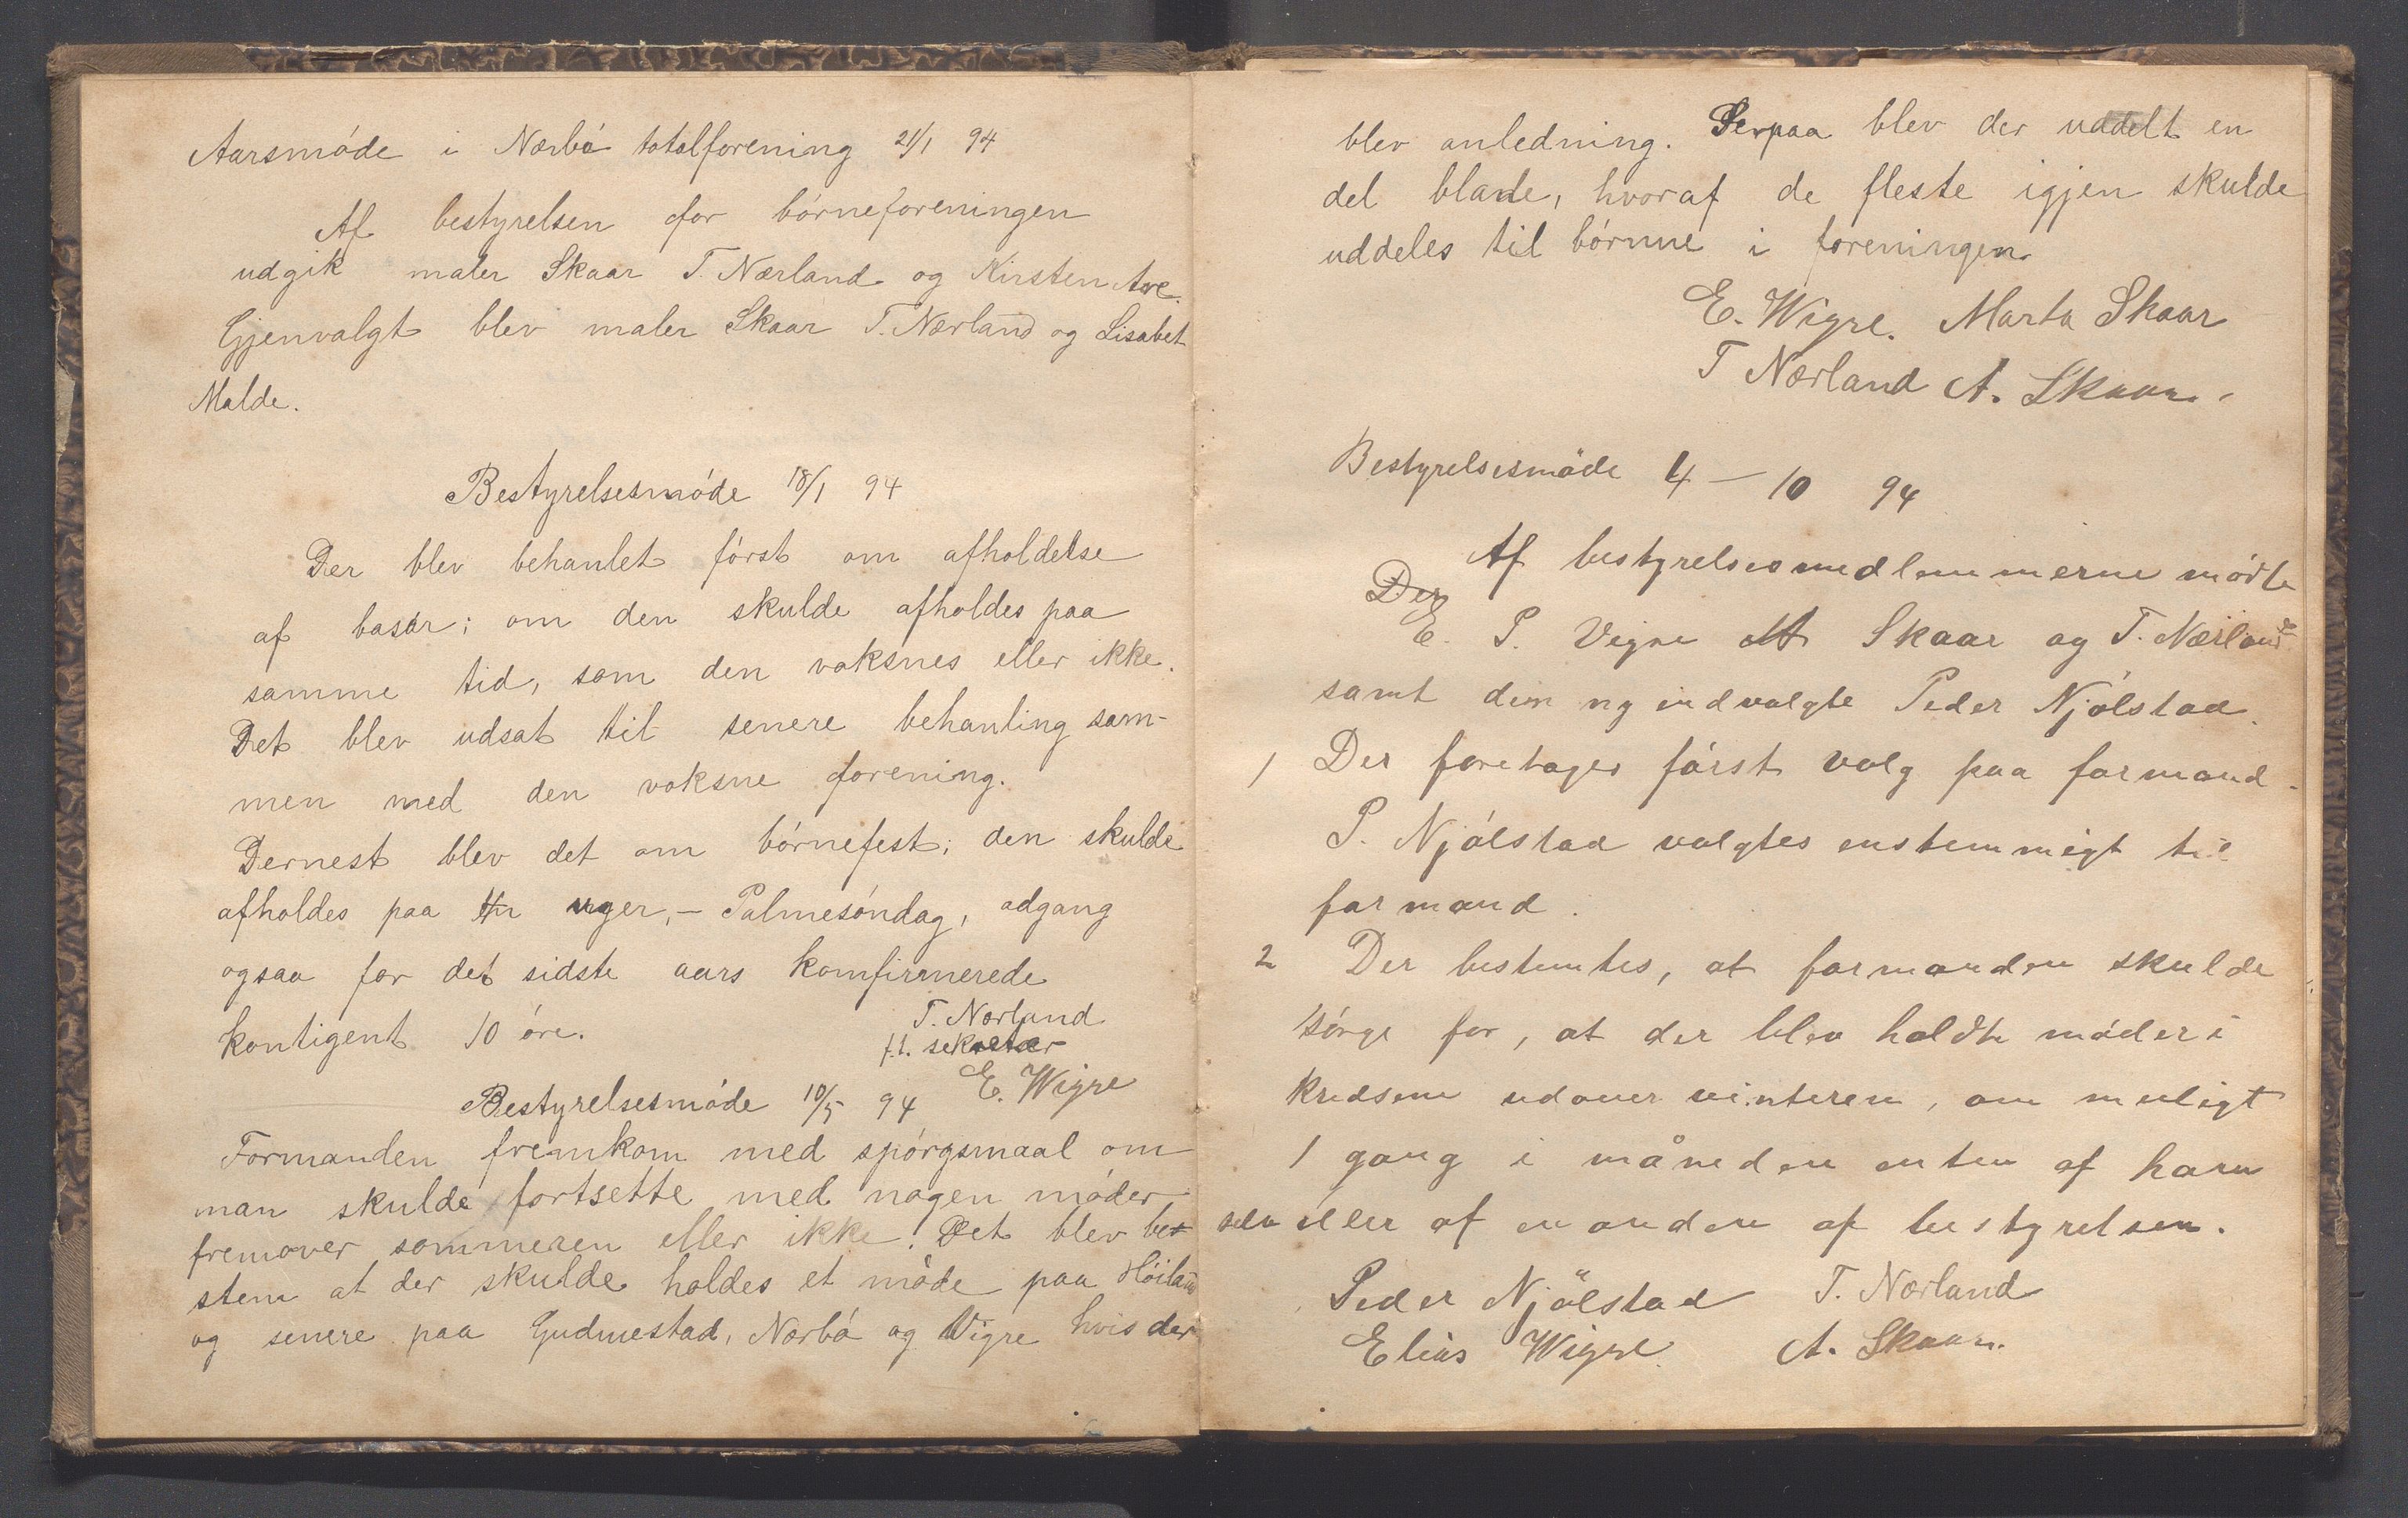 Aarsmóde i Nærbó totalforening 21/1 94
Af bestyrelsen for bórneforeningen
udgik maler Skaar T. Nærland og Kirsten Are.
Gjenvalgt blev maler Skaar T. Nærland og Lisabet
Malde.
Bestyrelsesmóde 18/1 94
Der blev behanlet fórst om afholdelse
af basar; om den skulde afholdes paa
samme tid, som den voksnes eller ikke.
Det blev udsat til senere behanling sam-
men med den voksne forening.
Dernest blev det om bórnefest; den skulde
afholdes paa uger, - Palmesóndag, adgang
ogsaa for det sidste aars komfirmerede
kontigent 10 óre.
T. Nærland
f.t. sekretær
E. Wigre
Bestyrelsesmóde 10/5 94
Formanden fremkom med spórgsmaal om
man skulde fortsette med nogen móder
fremover sommeren eller ikke. Det blev be-
stem at der skulde holdes et móde paa Hóiland
og senere paa Gudmestad, Nærbó og Vigre hvis der
blev anledning. Derpaa blev der uddelt en
del blade, hvoraf de fleste igjen skulde
uddeles til bórnne i foreningen.
E. Wigre. Marta Skaar
T Nærland A. Skaar.
Bestyrelsesmóde 4 – 10 94
Af bestyrelsesmedlemmerne módte
Der
E. P. Vigre A Skaar og T. Nærland
samt den ny indvalgte Peder Njólstad.
1 Der foretages fórst valg paa formand.
P. Njólstad valgtes enstemmigt til
formand.
2 Der bestemtes, at formanden skulde
sórge for, at der blev holdt móder i
kredsene udover vinteren, om muligt
1 gang i måneden enten af ham
selv eller af en anden af bestyrelsen.
Peder Njölstad T. Nærland
Elias Wigre A. Skaar.